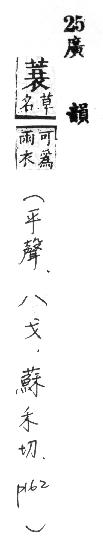 25廣韻
蓑草名可為雨衣
(平聲、八戈、蘇禾切、p162)